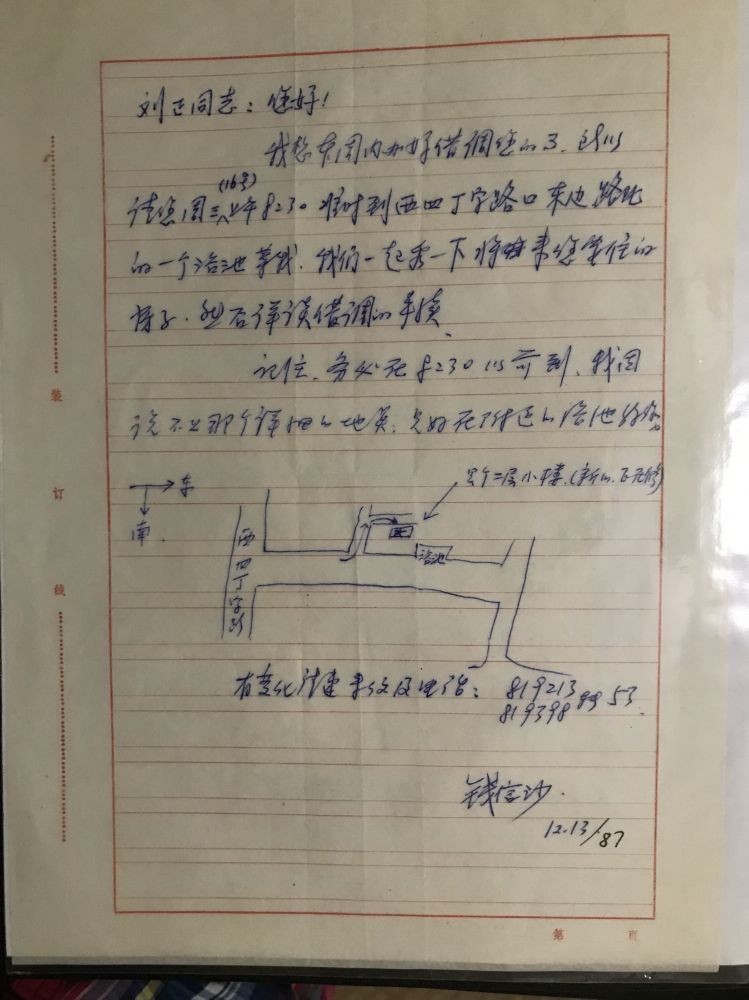 刘正同志：您好！
我想本周内办好借调您的事，所以
请您周三(16号)上午8:30准时到西四丁字路口东边路北
的一个浴池等我，我们一起看一下将来您单位的
样子，然后详谈借调的手续。
记住，务必在8:30以前到，我因
说不上那个详细的地点，只好在附近的浴池等你
东
南
是个二层小楼，(新的，正在修)
西四丁字路
浴池
有变化请速来电话：819213
819398 转 53.
钱信沙.
12.13/87
装
订
线
第 页